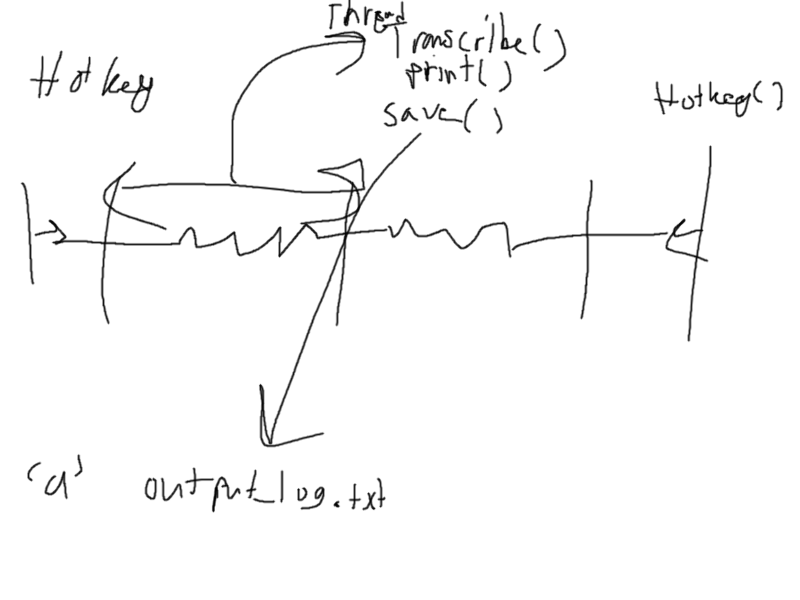 Thread
Transcribe()
print()
Hotkey
Hotkey()
save()
'a' output_log.txt